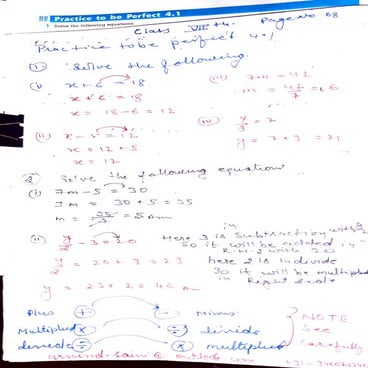 Practice to be Perfect 4.1
1 Solve the following equations.
Class VII th. Page no 68
Practice to be perfect 4.1
① Solve the following.
(i) x + 6 = 18
x + 6 = 18
x = 18 - 6 = 12
(ii) x - 5 = 12
x = 12 + 5
x = 17
(iii) 7m = 42
m = 42/7 = 6
(iv) y/3 = 7
y = 7 × 3 = 21
② Solve the following equation
(i) 7m - 5 = 30
7m = 30 + 5 = 35
m = 35/7 = 5 Ans
(ii) y/2 - 3 = 20
y/2 = 20 + 3 = 23
y = 23 × 2 = 46 Ans
Here 3 is Subtraction with
So it will be added in
R.H.S with 20
here 2 is in divide
So it will be multiplied
in Right side
Plus + - Minus
Multiplied × ÷ divide
devide ÷ × multiplied
NOTE
See
Carefully